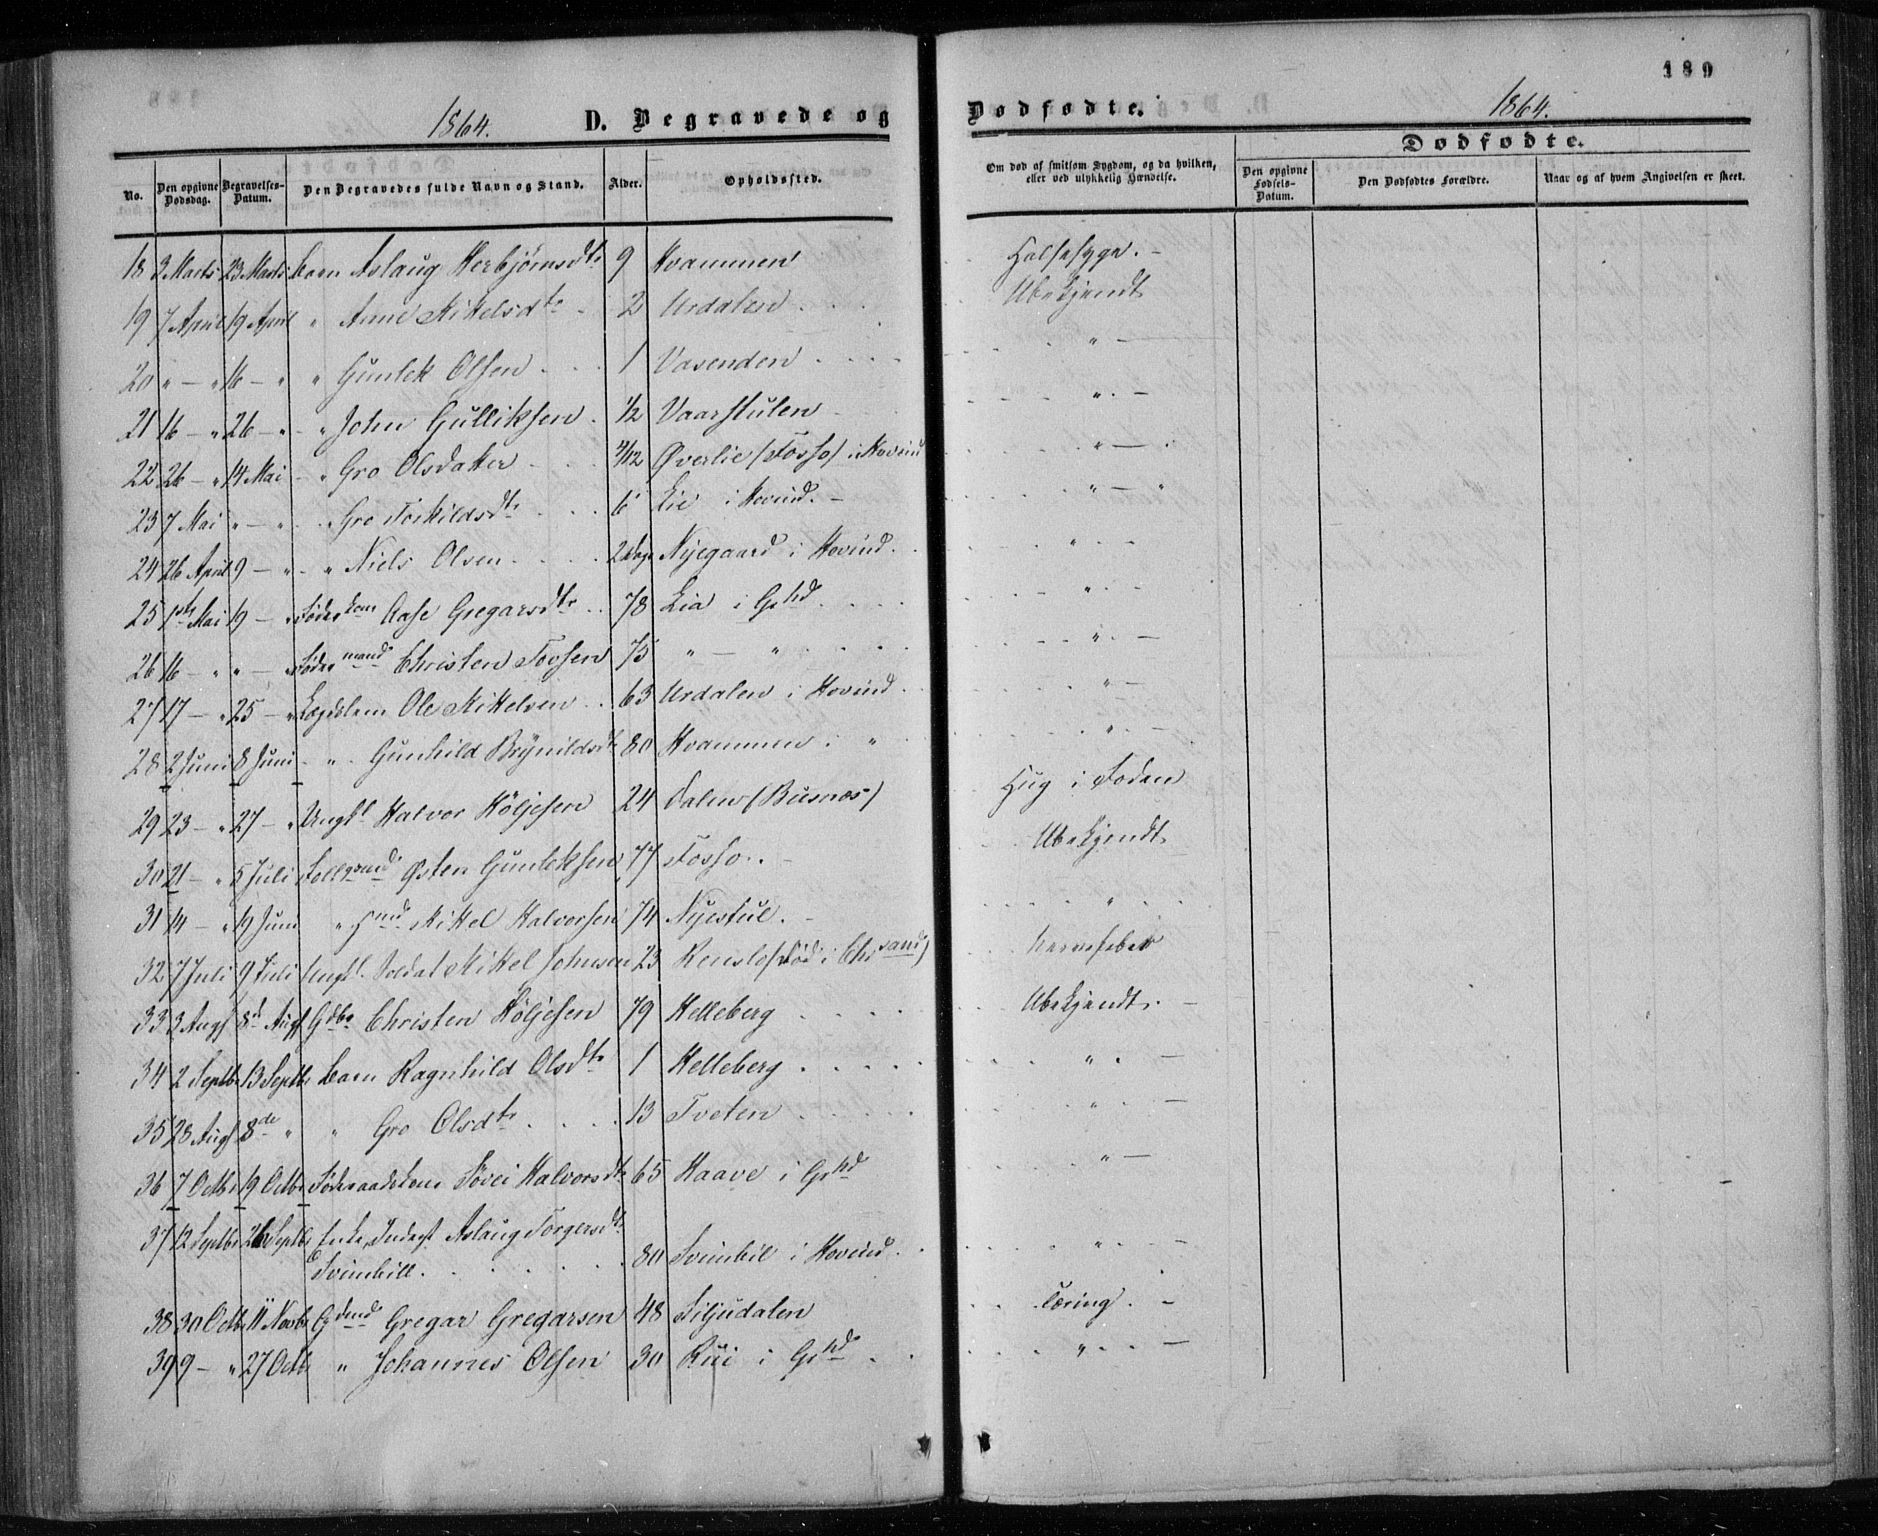 189
1864. D. Begravede og Dødfødte. 1864.
Dødfødte.
No. Den opgivne Dødsdag. Begravelses-Datum. Den Begravedes fulde Navn og Stand. Alder. Opholdssted. Om død af smitsom Sygdom, og da hvilken, eller ved ulykkelig Hændelse. Den opgivne Fødsels-Datum. Den Dødfødtes Forældre. Naar og af hvem Angivelsen er skeet.
18 2 Marts 23 Marts Barn Aslaug Herbjørnsdtr 9 Kvammen Halsesyge. -
19 7 April 19 April " Anne Mikelsdtr 2 Urdalen Ubekjendt
20 " - " 16 - " " Gunlek Olsen 1 Vasenden " -
21 16 - " 26 - " " John Gulliksen 1/2 Vaarstulen " -
22 26 - " 14 Mai - " Gro Olsdatter /12 Øverlie (Fosso) i Hovind " -
23 7 Mai " - " Gro Torkildsdtr 6 Lie i Hovind. - " - "
24 26 April 9 - " - " Niels Olsen 2 Dage Nyegaard i Hovind. " -
25 1ste Mai 19 - " Føderkone Aase Gregarsdtr 78 Lia i Grhd " -
26 16 - " " - " Fødermand Christen Tovsen 75 " - " " -
27 17 - " 25 - " Lægdslem Ole Mikkelsen 63 Urdalen i Hovind " -
28 2 Juni 8 Juni - " Gunhild Brynildsdtr 80 Kvammen i " " -
29 23 - " 27 - " Ungkl Halvor Køljesen 24 Dalen (Busnes) Hug i Foden
30 21 - " 5 Juli Østen Gunleksen 77 Fosso. - Ubekjendt.
31 14 - " 19 Juni " Mikkel Halvorsen 74 Nyestul. - "
32 7 Juli 9 Juli Ungkl. Soldat Mikkel Johnsen 23 Renslo (Død i Chrsand) Nervefeber
33 3 Augs 8d Augs Gdbr Christen Køljesen 79 Helleberg Ubekjendt. -
34 2 Septbr 13 Septbr Barn Ragnhild Olsdtr 1 Helleberg " -
35 28 Augs 8de " " Gro Olsdtr 13 Tveten " -
36 7 Octbr 19 Octbr Føderaadskone Søvei Halvorsdtr 65 Haave i Grhd " -
37 12 Septbr 26 Septbr Enke, Inderst Aslaug Torgersdtr
Svinbill 80 Svinbil i Hovind. " -
38 30 Octbr 11 Novbr Gregar Gregarsen 48 Siljudalen Tæring. -
39 9 - " 27 Octbr " Johannes Olsen 30 Rui i Grhd " -